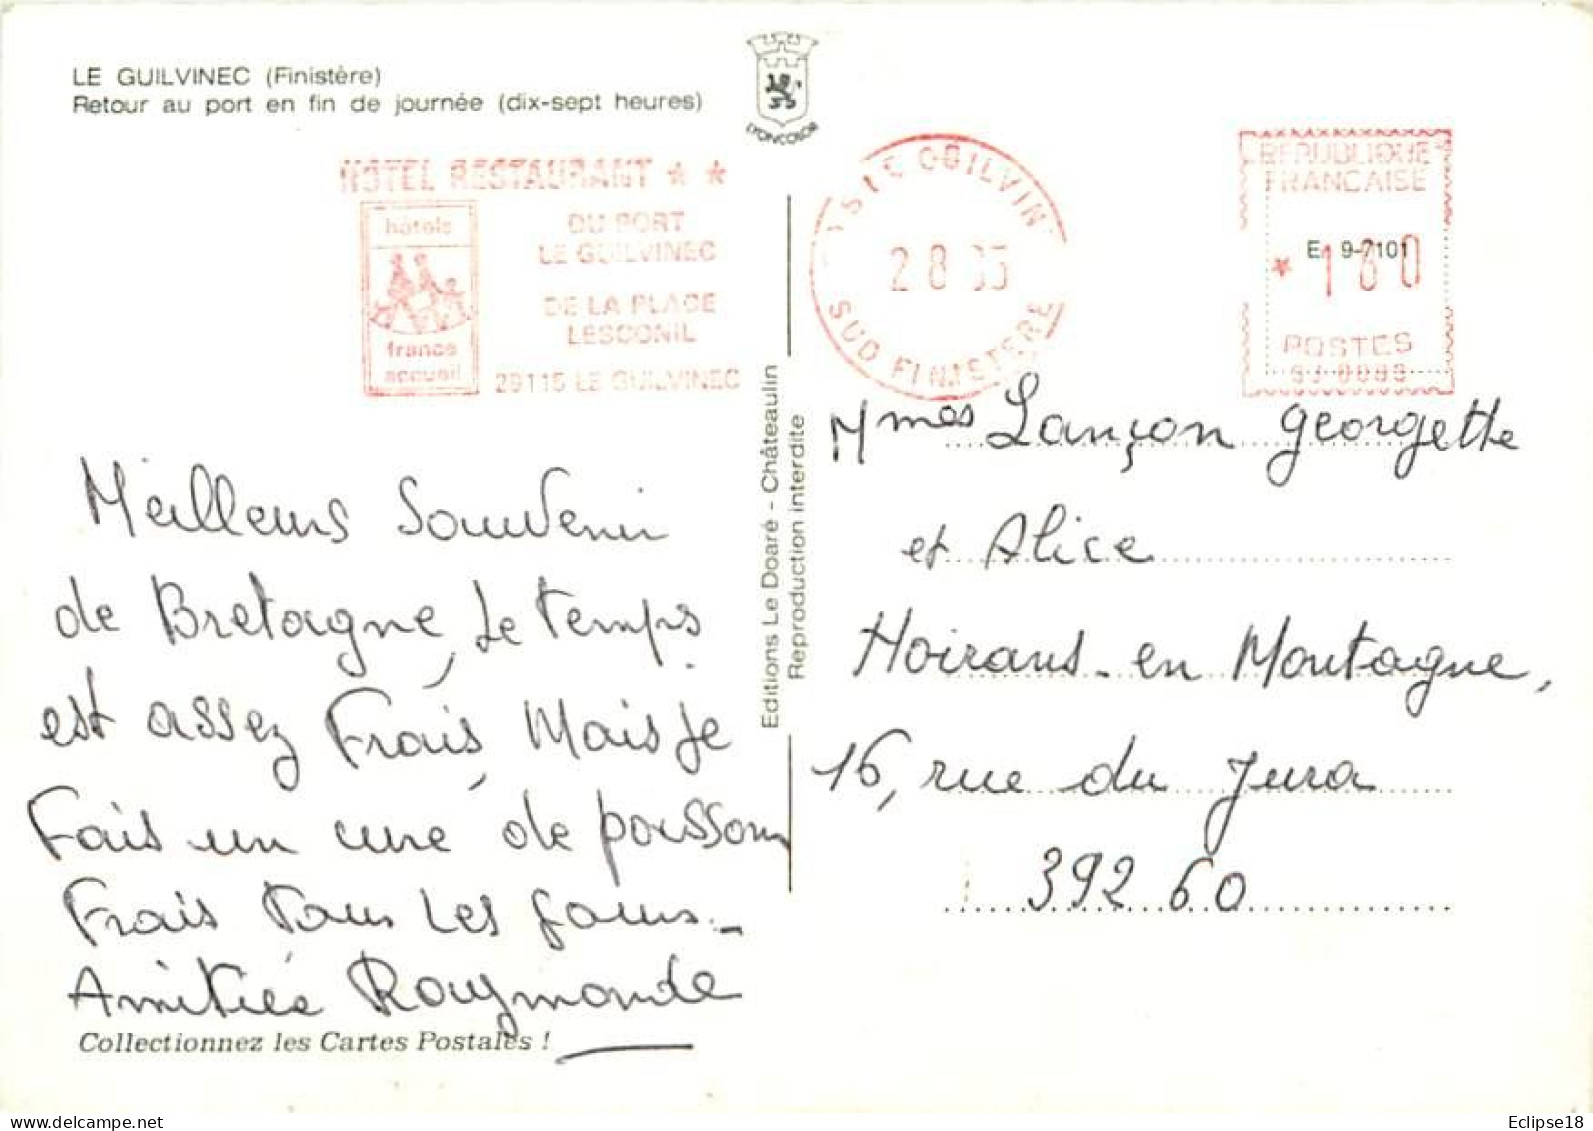 LE GUILVINEC (Finistère)
Retour au port en fin de journée (dix-sept heures)
LYONCOLOR
HOTEL RESTAURANT ★ ★
hôtels
france
accueil
DU PORT
LE GUILVINEC
DE LA PLAGE
LESCONIL
29115 LE GUILVINEC
SUD FINISTERE
2 8
REPUBLIQUE
FRANCAISE
E 9-7101
POSTES
Editions Le Doaré - Châteaulin
Reproduction interdite
Meilleurs Souvenir
de Bretagne, Le temps
est assez Frais, Mais Je
Fais un cure de poissons
Frais Tous Les Jours.
Amitiés Raymonde
Mmes Lançon Georgette
et Alice
Moirans-en Montagne,
16, rue du Jura
392 60
Collectionnez les Cartes Postales !
Eclipse18